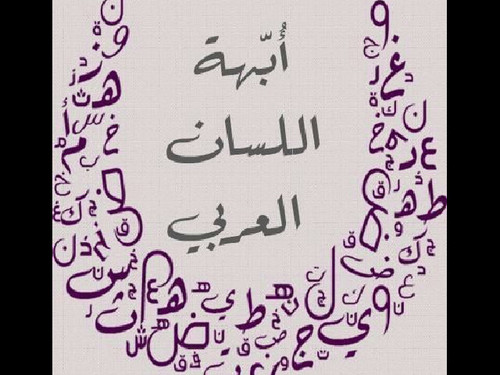 أُبّهة
اللسان
العربي